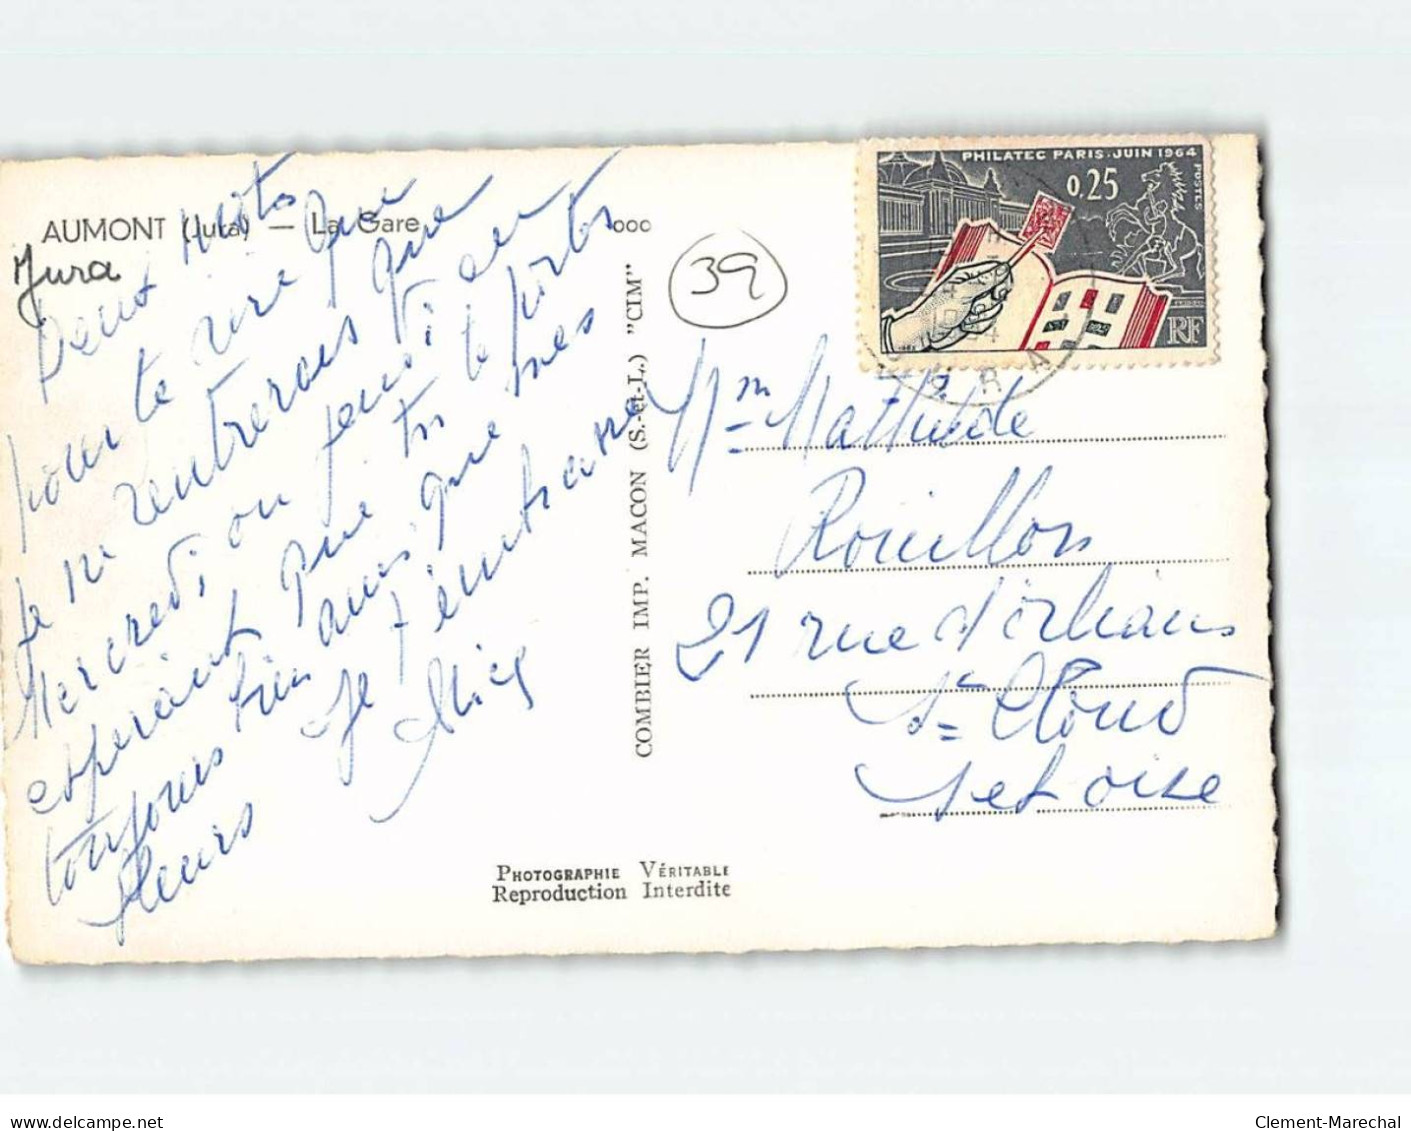 AUMONT (Jura) — La Gare
Jura
Deux mots
pour te dire que
je ne rentrerons que
Mercredi ou jeudi en
espérant que tu te portes
toujours bien ainsi que mes
fleurs
Je t'embrasse
ooo
39
COMBIER IMP. MACON (S.-et-L.) "CIM"
PHILATEC PARIS.JUIN 1964
0,25
POSTES
RF
JURA
Mme Mathilde
Rouillon
21 rue d'orléans
St Cloud
Set oise
PHOTOGRAPHIE VÉRITABLE
Reproduction Interdite
www.delcampe.net
Clement-Marechal